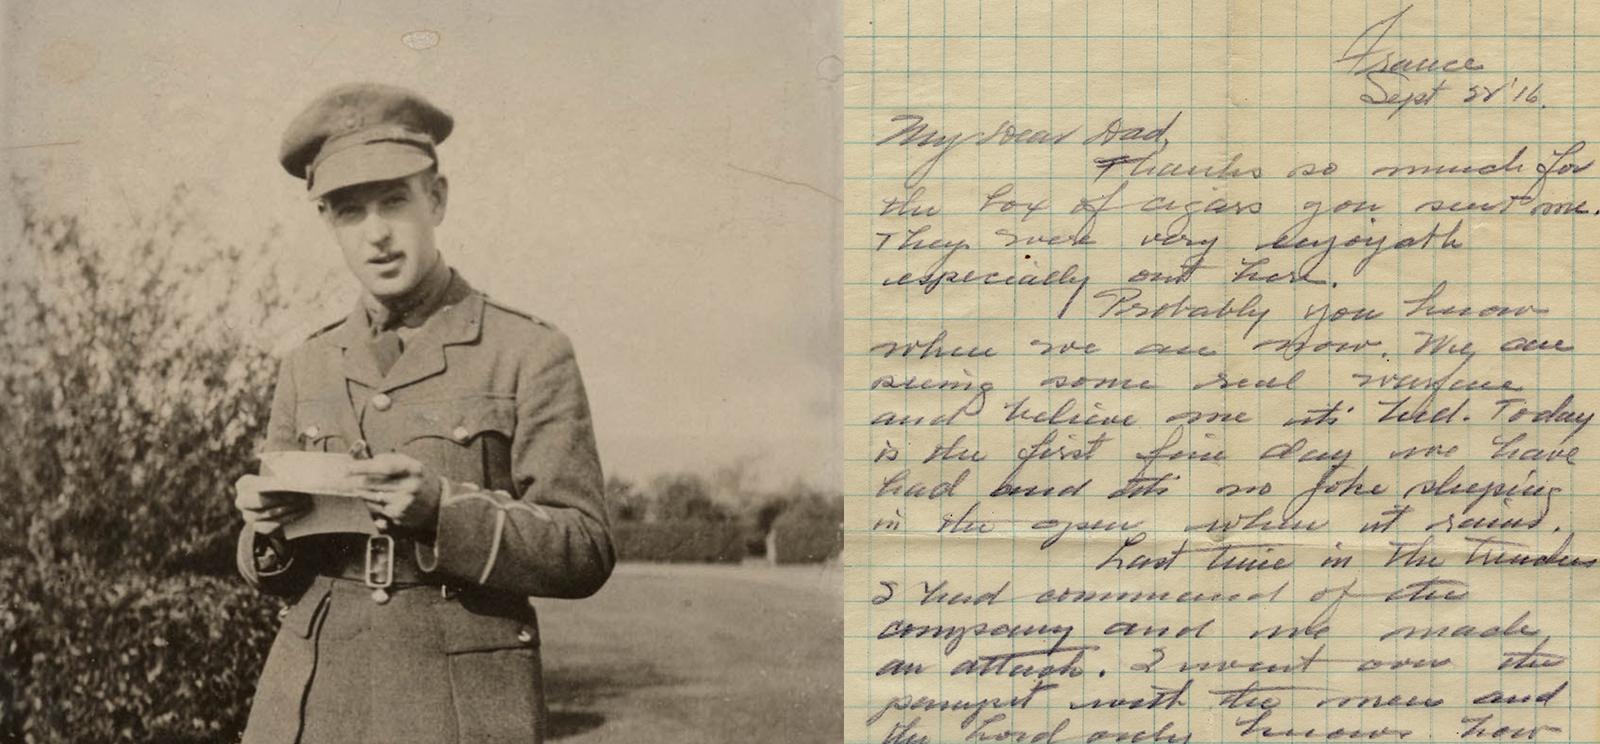 France
Sept 22 '16.
My Dear Dad,
Thanks so much for
the box of cigars you sent me.
They were very enjoyable
especially out here.
Probably you know
where we are now. We are
seeing some real warfare
and believe me its hell. Today
is the first fine day we have
had and its no joke sleeping
in the open when it rains.
Last time in the trenches
I had command of the
company and we made
an attack. I went over the
parapet with the men and
the Lord only knows how